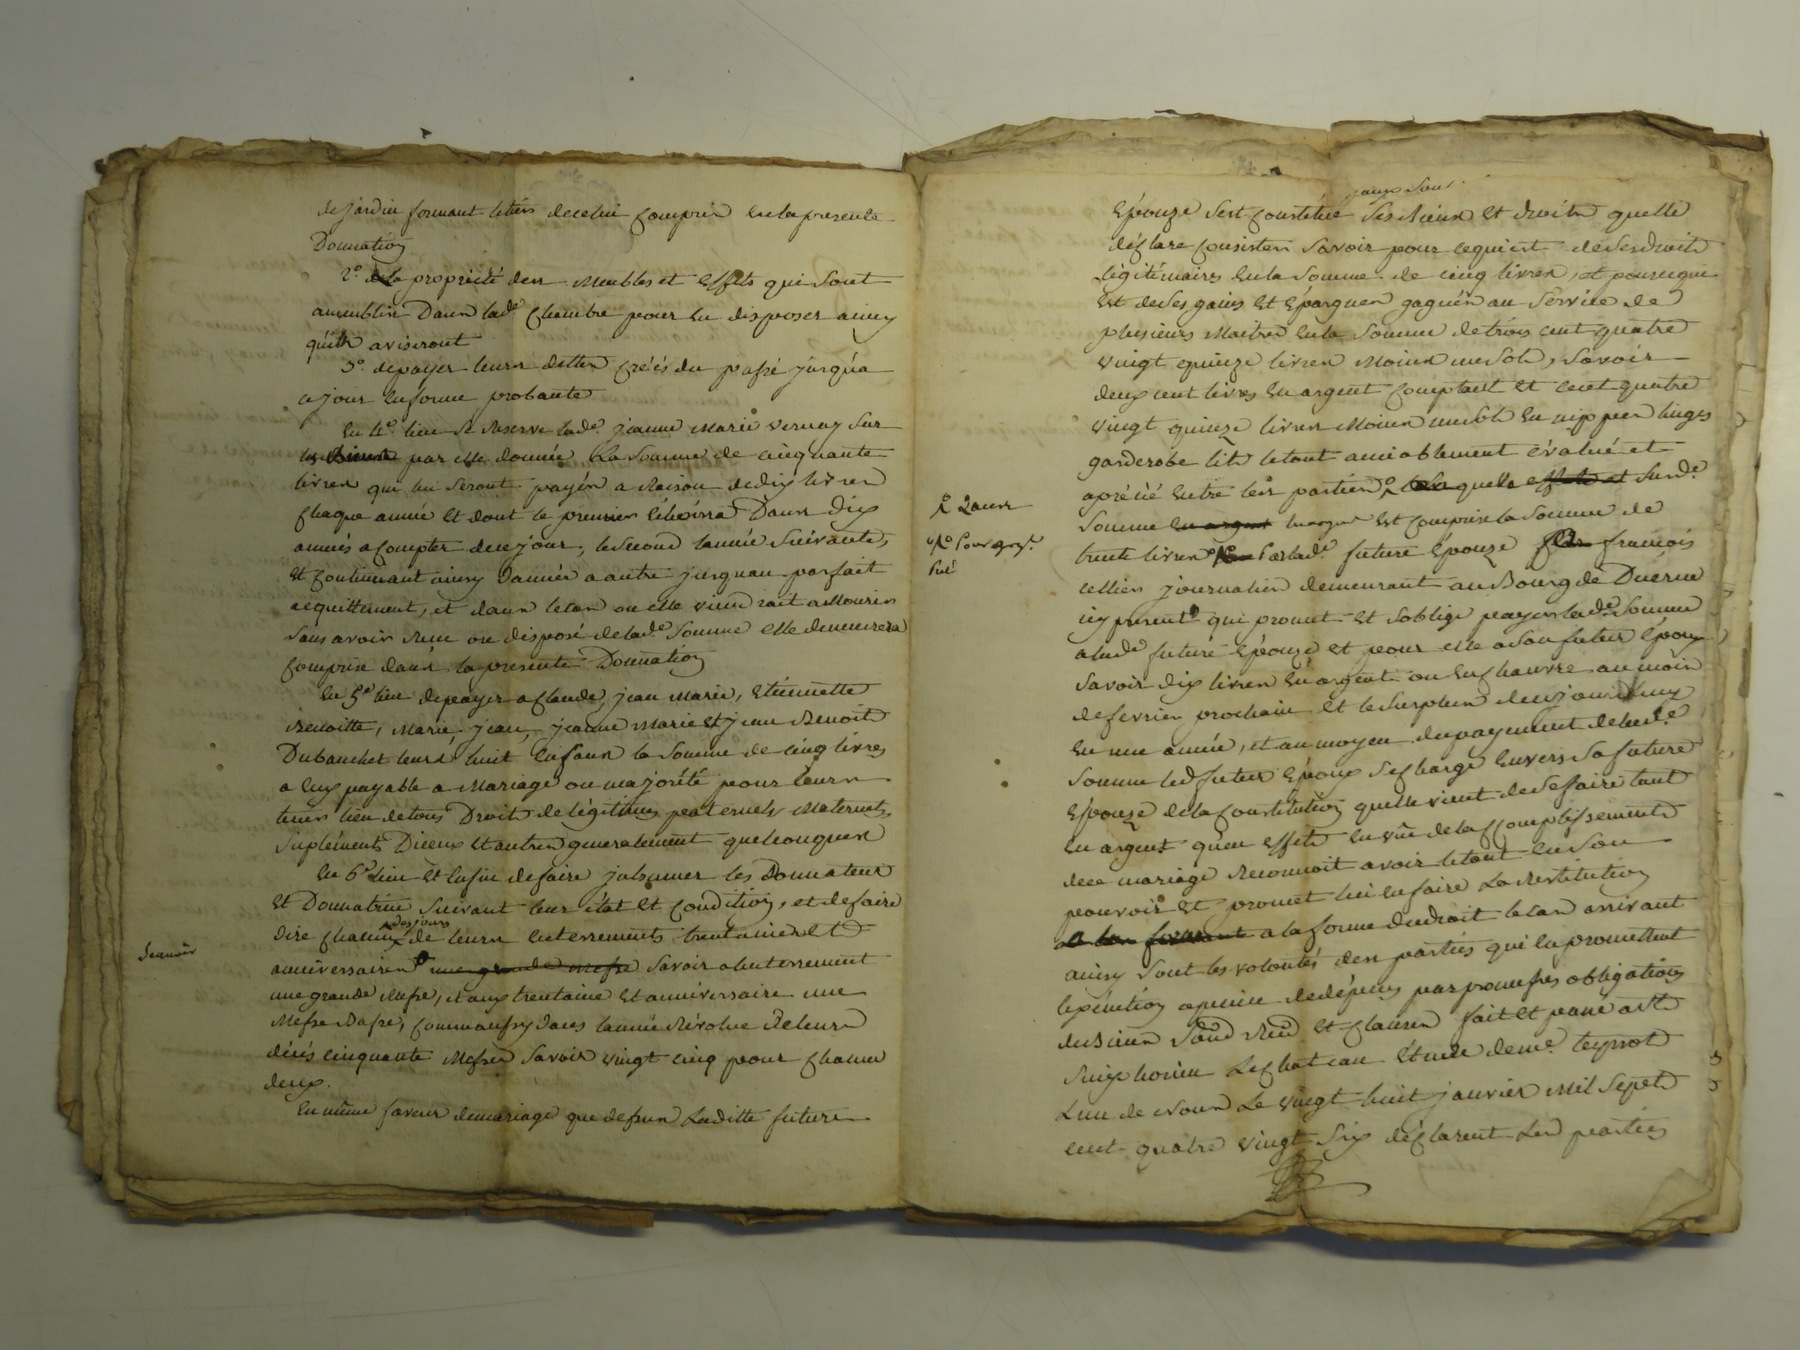 de jardin formant letiers decelui compris en la presente
Donnation
2º. la propriété des Meubles et effets qui sont
Dans lad.e chambre pour en disposer ainsy
quils aviseront
3º. depayer leurs dettes créés du passé jusqu'a
ce jour enforme probante
En 4e. lieu se Reserve lad.e jeanne Marie Vernay Sur
les par elle donnée La Somme de cinquante
livres qui lui Seront payés a Raison dedix livres
chaque année et dont le premier échoirra Dans dix
années a compter decejour, le second l'année Suivante
et continuant ainsy d'année a autre jusquau parfait
acquittement, et dans lecas ou elle viendrait a Mourir
sans avoir Reçu ou disposé delad.e Somme elle demeurera
comprise dans la presente Donnation
En 5e lieu depayer a Claude, jean Marie, Etiennette
Benoitte, Marie, jean, jeanne Marie et jean Benoit
Dubanchet leurs huit enfans la Somme de cinq livres
a eux payable a Mariage ou majorité pour leurs
tenir lieu detous Droits delégitimes paternels Maternels,
Supléments Diceux et autres generalement quelconques
En 6e lieu et enfin defaire inhumer les Donnateur
et Donnatrice Suivant leur état et condition, et defaire
dire chacun des jours de leurs enterrements trentaines et
anniversaires une grande Messe Savoir alenterrement
une grande Messe, et aux trentaine et anniversaire une
Messe Basse, comm'aussy dans lannée Révolue deleurs
décés cinquante Messes Savoir vingt cinq pour chacun
deux.
En même faveur demariage que dessus Laditte future
jaux Sous
Epouze sest constitué Ses Biens et droits quelle
déclare consister Savoir pour cequi est deses droits
légitimaires en la Somme de cinq livres, et pour cequi
est deses gains et épargnes gagnés au Service de
plusieurs Maitres en la Somme detrois cent quatre
vingt quinze livres Moins un sol, Savoir
deux cent livres en argent comptant et cent quatre
vingt quinze livres Moins un sol en nippes linges
garderobe lit letout amiablement évalué et
aprécié entre les parties quelle effets et Sur d.e
Somme en argent est comprise la Somme de
trente livres Par lad.e future épouze francois
cellier journalier demeurant au Bourg de Duerne
icy present qui promet et soblige payer lad.e Somme
a lad.e future épouze et pour elle a son futur époux
Savoir dix livres en argent ou en chanvre au mois
defevrier prochain et le surplus decejourd'huy
en une année, et au moyen dupayement delad.e
Somme led futur époux Secharge envers Sa future
épouze dela constitution quelle vient de Se faire tant
en argent qu'en effets en vüe de laccomplissement
dece mariage Reconnoit avoir letout en Son
pouvoir et promet lui en faire la Restitution
a la forme du droit lecas arrivant
ainsy sont les volontés des parties qui en promettent
lexécution apeine dedépens par promesses obligations
deBiens et clauses fait et passé a St
Simphorien Le chateau Etude de me. teyssot
L'un de Nous Le vingt huit janvier Mil Sept
cent quatre vingt Six déclarent Les parties